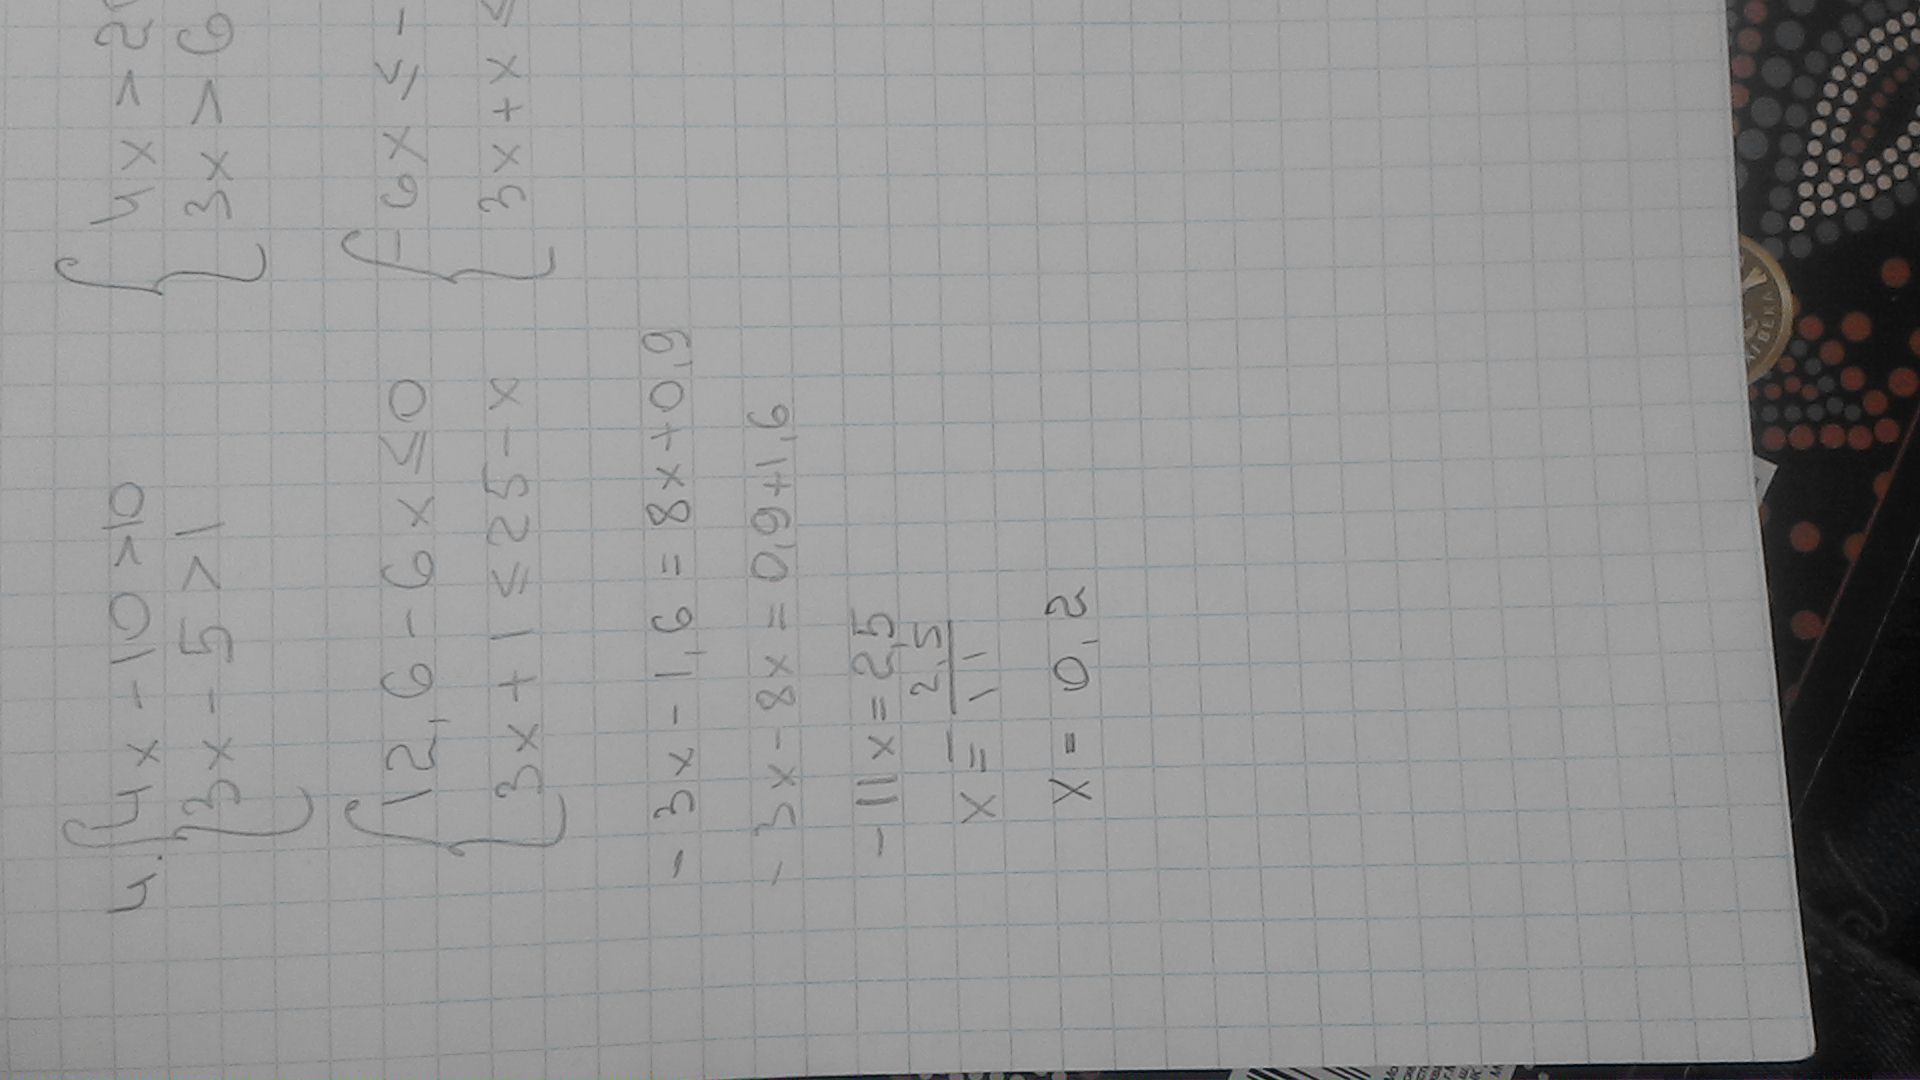 4. { 4x - 10 > 10 { 4x > 2
3x - 5 > 1 3x > 6
{ 12,6 - 6x ≤ 0 { - 6x ≤ -
3x + 1 ≤ 25 - x 3x + x ≤
- 3x - 1,6 = 8x + 0,9
- 3x - 8x = 0,9 + 1,6
- 11x = 2,5
x = - 2,5/11
x = 0,2